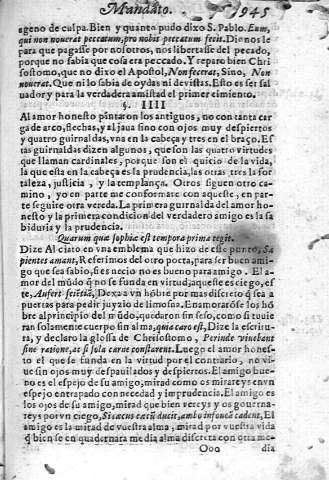 Mandato. 945
ageno de culpa. Bien y quanto pudo dixo S. Pablo. Eum,
qui non nouerat peccatum, pro nobis peccatum fecit. Dionosle
para que pagasse por nosotros, nos libertasse del pecado,
porque no sabia que cosa era peccado. Y reparo bien Chri
sostomo, que no dixo el Apostol, Non fecerat, Sino, Non
nouerat. Que ni lo sabia de oydas ni de vistas. Esto es ser sal
uador y para la verdadera amistad el primer cimiento.
§. IIII
Al amor honesto pintaron los antiguos, no con tanta car
ga de arco, flechas, y aljaua sino con ojos muy despiertos
y quatro guirnaldas, vna en la cabeça y tres en el braço. Es
tas guirnaldas dizen algunos, que son las quatro virtudes
que llaman cardinales, porque son el quicio de la vida,
la que esta en la cabeça es la prudencia, las otras tres la for
taleza, justicia, y la templança. Otros siguen otro ca
mino, yo en parte me conformare con aqueste, en par-
te seguire otra vereda. La primera guirnalda del amor ho
nesto y la primera condicion del verdadero amigo es la sa
biduria y la prudencia.
Quarum quæ sophiæ est tempora prima tegit.
Dize Alciato en vna emblema que hizo de este punto, Sa
pientes amant, Referimos del otro poeta, para ser buen ami
go que sea sabio, si es necio no es bueno para amigo. El a-
mor del mũdo q̃ no se funda en virtud, aqueste es ciego, es
te, Dexa a vn hõbre por mas discreto q̃ sea a
puertas para pedir juyzio de limosna. Enamorarõse los hõ
bre al principio del mũdo, quedaron sin seso, como si tuuie
ran solamente cuerpo sin alma, quia caro est, Dize la escritu
ra, y declaro la glossa de Chrisostomo, Perinde viuebant
sine ratione, ac si sola carne constarent. Luego el amor hones-
to el que se funda en la virtud por el contrario, no vi
ue sin ojos muy despauilados y despiertos. El amigo bue-
no es el espejo de su amigo, mirad como os mirareys en vn
espejo entrapado con necedad y imprudencia. El amigo es
los ojos de su amigo, mirad que bien vereys y os gouerna-
reys por vn ciego, Si cæcus cæcũ ducit, ambo in foueã cadent, El
amigo es la mitad de vuestra alma, mirad por vuestra vida
q̃ bien se en quadernara media alma discreta con otra me-
Ooo dia